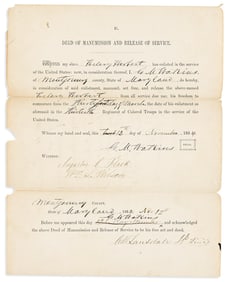 B.
DEED OF MANUMISSION AND RELEASE OF SERVICE.
Whereas my slave, Hilary Herbert, has enlisted in the service
of the United States: now, in consideration thereof, I, G. M. Watkins,
of Montgomery county, State of Maryland, do hereby,
in consideration of said enlistment, manumit, set free, and release the above-named
Hilary Herbert, from all service due me; his freedom to
commence from the of March, the date of his enlistment as
aforesaid in the Regiment of Colored Troops in the service of the
United States.
Witness my hand and seal, this 18th day of November 1864
G. M. Watkins
Witness:
Wm. S. Wilson
Montgomery COUNTY,
State Maryland,
Before me appeared this day G. M. Watkins and acknowledged
the above Deed of Manumission and Release of Service to be his free act and deed.